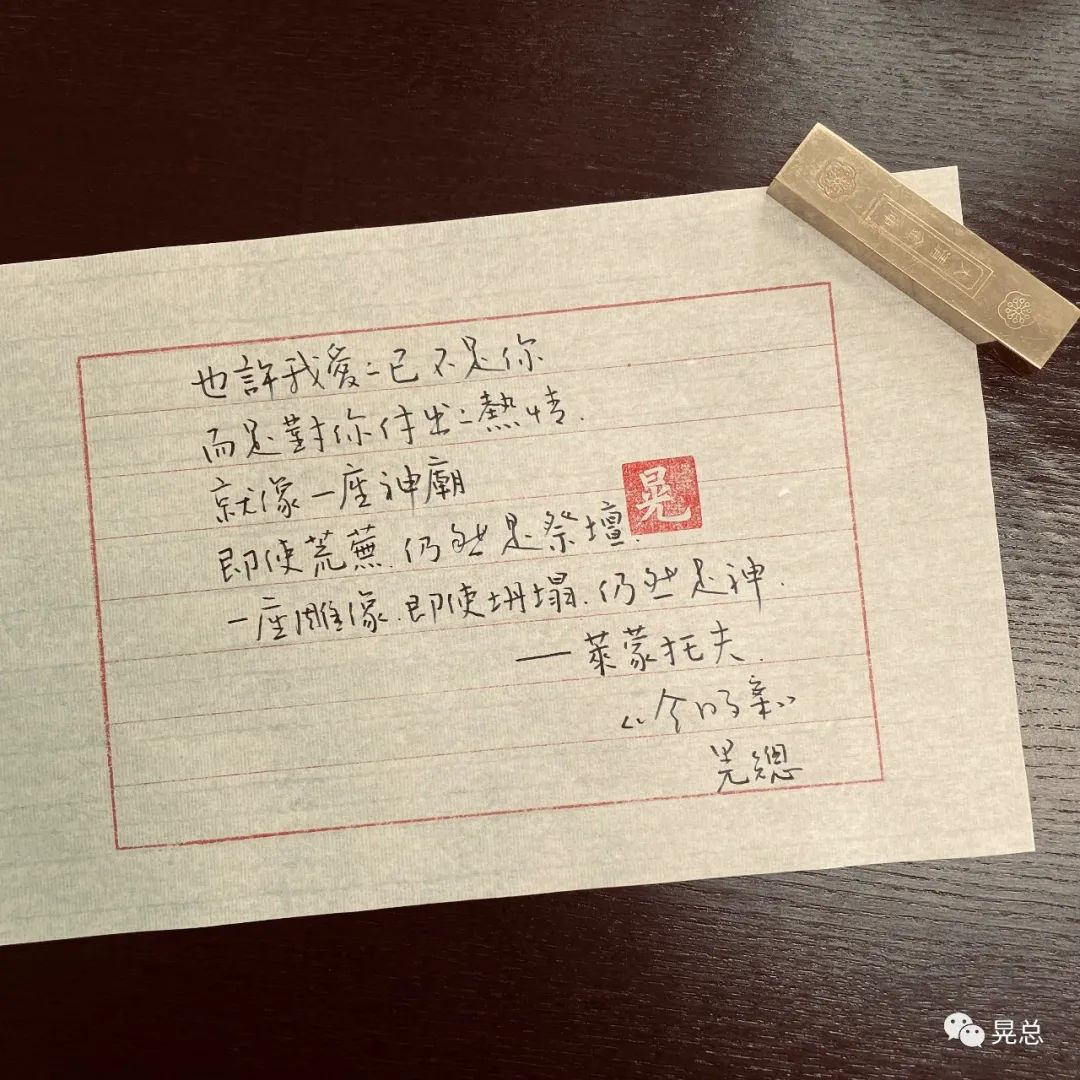 也許我愛的已不是你
而是對你付出的熱情.
就像一座神廟
即使荒蕪.仍然是祭壇.
一座雕像.即使坍塌.仍然是神.
——萊蒙托夫.
晃總
晃
晃总